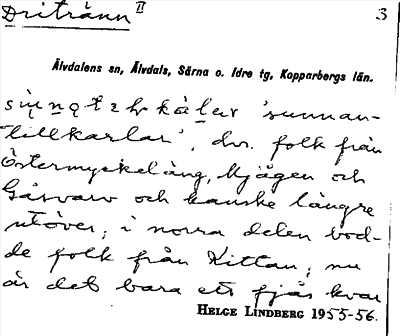 Dritränn II
3
Älvdalens sn, Älvdals, Särna o. Idre tg, Kopparbergs län.
'sunnan-
tillkarlar', dvs. folk från
Östermyckeläng, Kjägen och
Gåsvarv och kanske längre
utöver, i norra delen bod-
de folk från Kittan, nu
är det bara ett fjäs kvar
HELGE LINDBERG 1955-56.